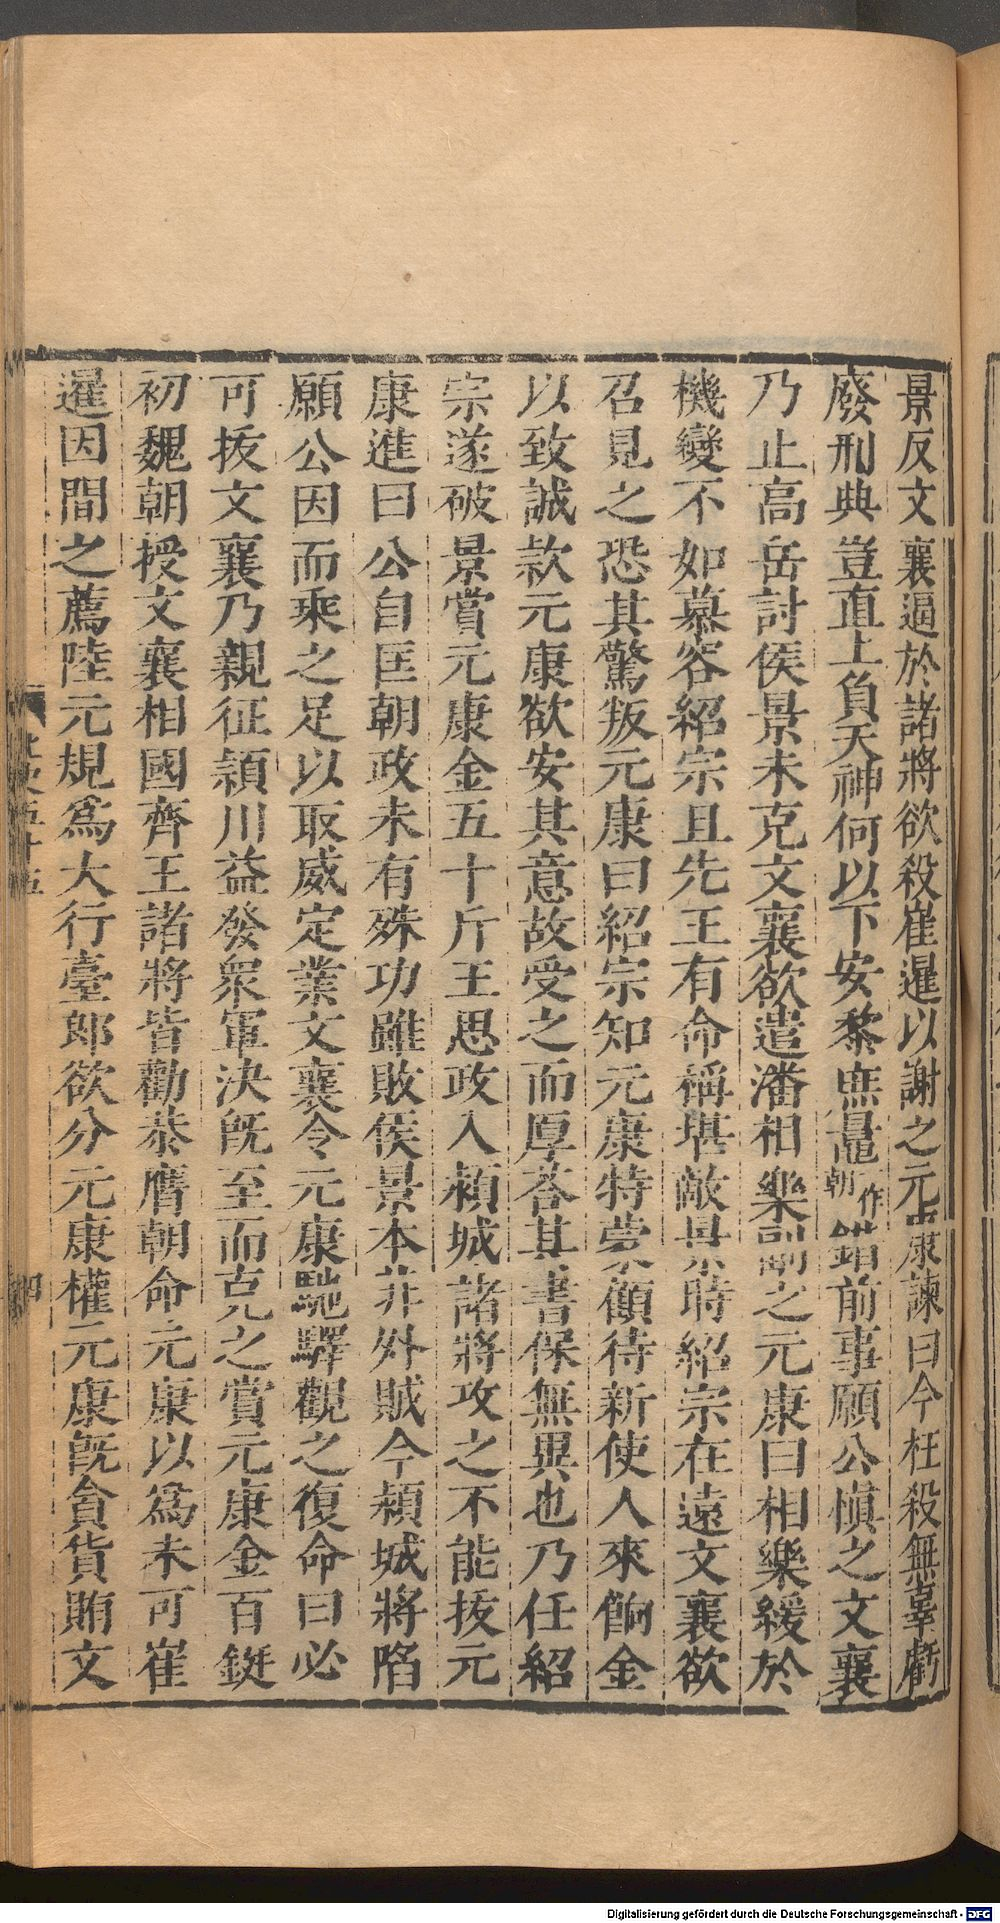 景反文襄逼於諸將欲殺崔暹以謝之元康諫曰今枉殺無辜虧
廢刑典豈直上負天神何以下安黎庶鼂朝作錯前事願公慎之文襄
乃止高岳討侯景未克文襄欲遣潘相樂副之元康曰相樂緩於
機變不如慕容紹宗且先王有命稱堪敵景時紹宗在遠文襄欲
召見之恐其驚叛元康曰紹宗知元康特蒙顧待新使人來餉金
以致誠款元康欲安其意故受之而厚荅其書保無異也乃任紹
宗遂破景賞元康金五十斤王思政入潁城諸將攻之不能拔元
康進曰公自匡朝政未有殊功雖敗侯景本非外賊今潁城將陷
願公因而乘之足以取威定業文襄令元康馳驛觀之復命曰必
可拔文襄乃親征潁川益發衆軍決旣至而克之賞元康金百鋌
初魏朝授文襄相國齊王諸將皆勸恭膺朝命元康以爲未可崔
暹因間之薦陸元規爲大行臺郎欲分元康權元康旣貪貨賄文
北史五十五
四
Digitalisierung gefördert durch die Deutsche Forschungsgemeinschaft - DFG